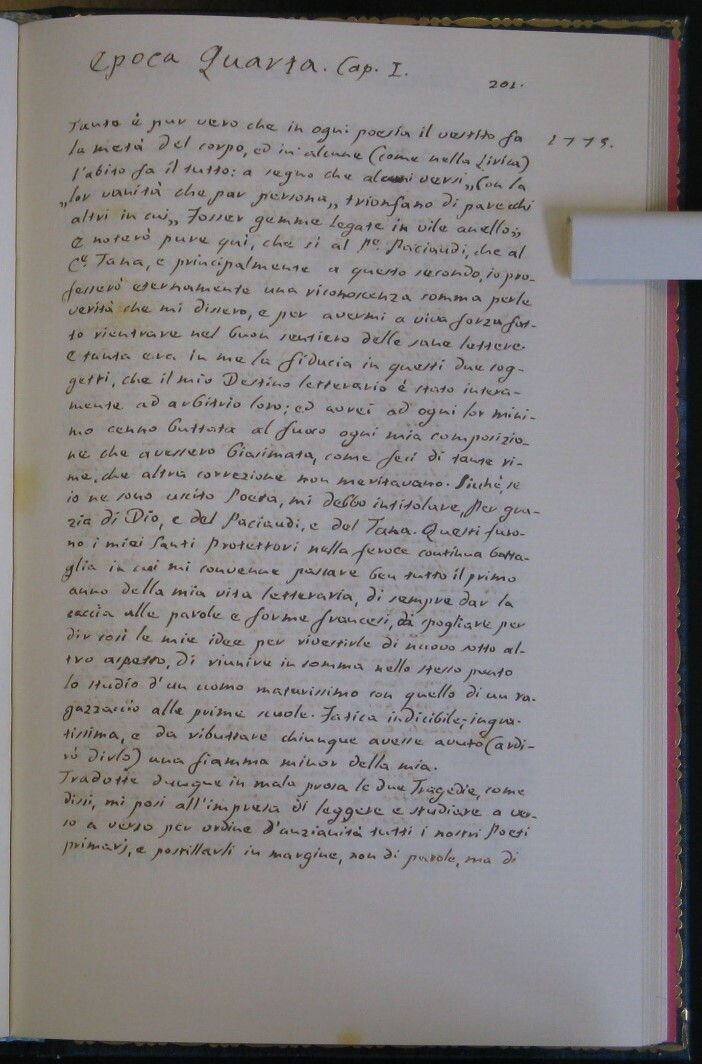 Epoca Quarta. Cap. I.
201.
Tanto è pur vero che in ogni poesia il vestito fa
1775.
la metà del corpo, ed in alcune (come nella Lirica)
l'abito fa il tutto: a segno che alcuni versi „Con la
„lor vanità che par persona„ trionfano di parecchi
altri in cui„ Fosser gemme legate in vile anello„
E noterò pure qui, che sì al Pe. Paciaudi, che al
Ce. Tana, e principalmente a questo secondo, io pro-
fesserò eternamente una riconoscenza somma per le
verità che mi dissero, e per avermi a viva forza fat-
to rientrare nel buon sentiero delle sane lettere.
E tanta era in me la fiducia in questi due sog-
getti, che il mio Destino letterario è stato intera-
mente ad arbitrio loro; ed avrei ad ogni lor mini-
mo cenno buttata al fuoco ogni mia composizio-
ne che avessero biasimata, come feci di tante ri-
me, che altra correzione non meritavano. Sicchè, se
io ne sono uscito Poeta, mi debbo intitolare, Per gra-
zia di Dio, e del Paciaudi, e del Tana. Questi furo-
no i miei Santi Protettori nella feroce continua batta-
glia in cui mi convenne passare ben tutto il primo
anno della mia vita letteraria, di sempre dar la
caccia alle parole e forme francesi, di spogliare per
dir così le mie idee per rivestirle di nuovo sotto al-
tro aspetto, di riunire in somma nello stesso punto
lo studio d'un uomo maturissimo con quello di un ra-
gazzaccio alle prime scuole. Fatica indicibile, ingra-
tissima, e da ributtare chiunque avesse avuto (ardi-
rò dirlo) una fiamma minor della mia.
Tradotte dunque in mala prosa le due Tragedie, come
dissi, mi posi all'impresa di leggere e studiare a ver-
so a verso per ordine d'anzianità tutti i nostri Poeti
primarj, e postillarli in margine, non di parole, ma di